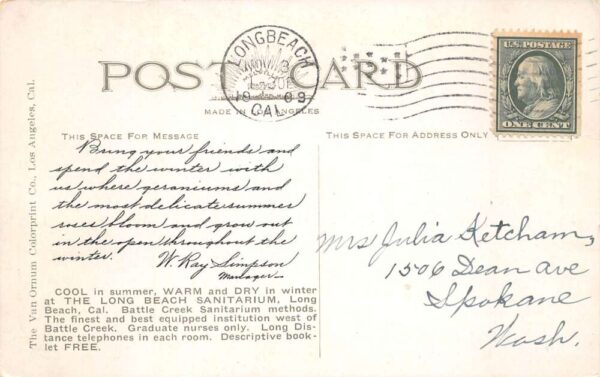 POST CARD
LONG BEACH
NOV
1909
CAL.
U.S. POSTAGE
ONE CENT
MADE IN LOS ANGELES
THIS SPACE FOR MESSAGE
THIS SPACE FOR ADDRESS ONLY
Bring your friends and
spend the winter with
us where geraniums and
the most delicate summer
roses bloom and grow out
in the open throughout the
winter. W. Ray Simpson
Manager
COOL in summer, WARM and DRY in winter
at THE LONG BEACH SANITARIUM, Long
Beach, Cal. Battle Creek Sanitarium methods.
The finest and best equipped institution west of
Battle Creek. Graduate nurses only. Long Dis-
tance telephones in each room. Descriptive book-
let FREE.
Mrs Julia Ketcham,
1506 Dean ave
Spokane
Wash.
The Van Ornum Colorprint Co., Los Angeles, Cal.